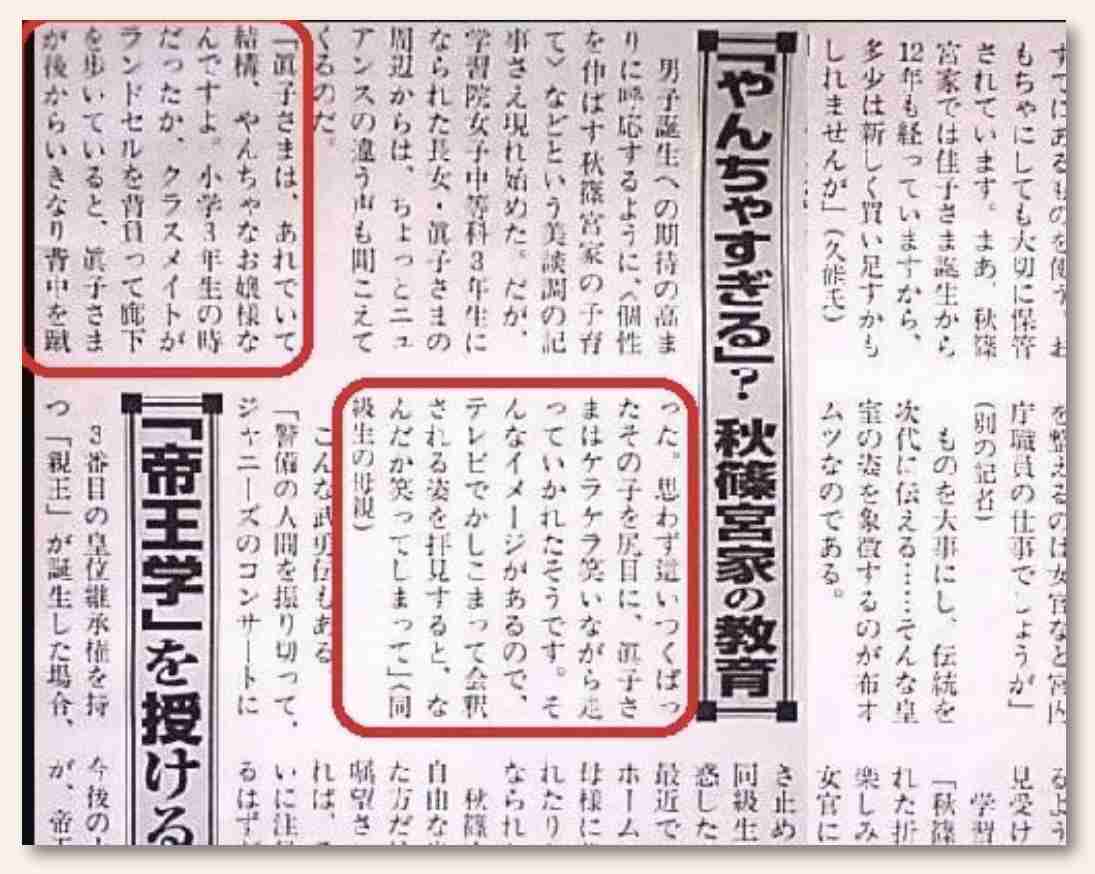 すでにあるものを使う。お
もちゃにしても大切に保管
されています。まあ、秋篠
宮家では佳子さま誕生から
12年も経っていますから、
多少は新しく買い足すかも
しれませんが」(久能氏)
を整えるのは女官など宮内
庁職員の仕事でしょうが」
(別の記者)
ものを大事にし、伝統を
次代に伝える……そんな皇
室の姿を象徴するのが布オ
ムツなのである。
るよう
見受け
学習
「秋篠
れた折
楽しみ
女官に
「やんちゃすぎる」? 秋篠宮家の教育
男子誕生への期待の高ま
りに呼応するように、〈個性
を伸ばす秋篠宮家の子育
て〉などという美談調の記
事さえ現れ始めた。だが、
学習院女子中等科3年生に
なられた長女・眞子さまの
周辺からは、ちょっとニュ
アンスの違う声も聞こえて
くるのだ。
「眞子さまは、あれでいて
結構、やんちゃなお嬢様な
んですよ。小学3年生の時
だったか、クラスメイトが
ランドセルを背負って廊下
を歩いていると、眞子さま
が後からいきなり背中を蹴
った。思わず這いつくばっ
たその子を尻目に、眞子さ
まはケラケラ笑いながら走
っていかれたそうです。そ
んなイメージがあるので、
テレビでかしこまって会釈
される姿を拝見すると、な
んだか笑ってしまって」(同
級生の母親)
こんな武勇伝もある。
「警備の人間を振り切って、
ジャニーズのコンサートに
き止め
同級生
惑した
最近で
ホーム
母様に
れたり
なられ
秋篠
自由な
た方だ
嘱望さ
れば、
いに注
るはず
「帝王学」を授ける
3番目の皇位継承権を持
つ「親王」が誕生した場合、
今後の
が、帝王